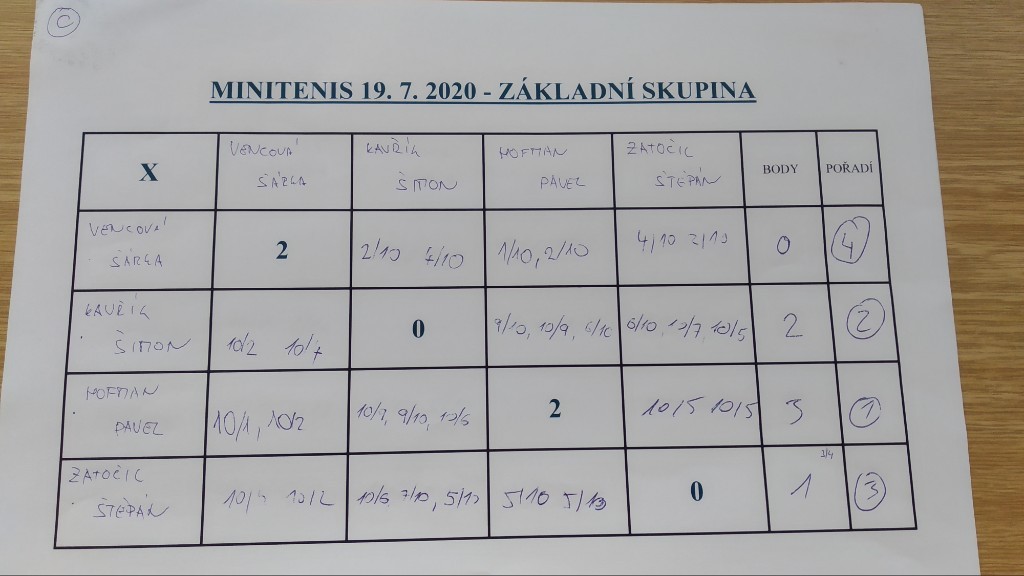 C
MINITENIS 19. 7. 2020 - ZÁKLADNÍ SKUPINA
X VENCOVÁ ŠÁRKA KAVŘÍK ŠIMON HOFMAN PAVEL ZATOČIL ŠTĚPÁN BODY POŘADÍ
VENCOVÁ ŠÁRKA 2 2/10 7/10 1/10, 2/10 4/10 2/10 0 4
KAVŘÍK ŠIMON 10/2 10/7 0 10/9, 6/10 6/10, 10/7, 10/5 2 2
HOFMAN PAVEL 10/1, 10/2 9/10, 10/6 2 10/5 10/5 3 1
ZATOČIL ŠTĚPÁN 10/4 10/2 10/6 7/10, 5/10 5/10 5/10 0 1 3/4 3